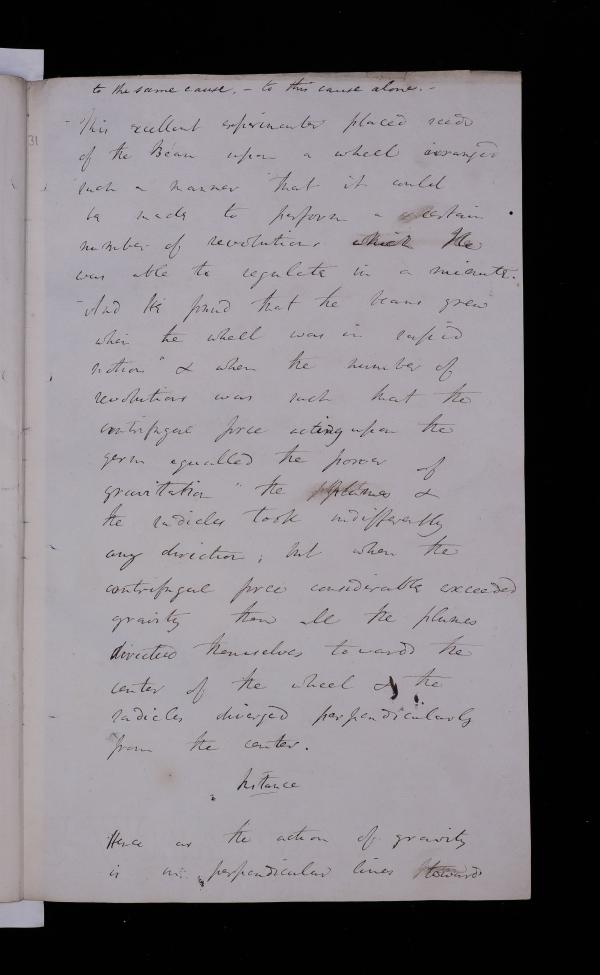 to the same cause. - to this cause alone. -
31
- This excellent experimenter placed seeds
of the Bean upon a wheel arranged
such a manner that it could
be made to perform a certain
number of revolutions which He
was able to regulate in a minute.
- And He found that the beans grew
when the wheel was in rapid
motion" & when the number of
revolutions was such that the
centrifugal force acting upon the
germ equalled the power of
gravitation " the plumes &
the radicles took indifferently
any direction; but when the
centrifugal force considerable exceeded
gravity then all the plumes
directed themselves towards the
center of the wheel & the
radicles diverged perpendicularly
from the center.
Instance
Hence as the action of gravity
is in perpendicular lines toward